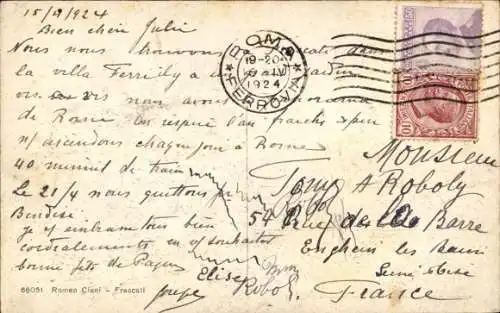 15/4/924
Bien cher Julie
Nous nous trouvons dans
la villa a un jardin
vis vis nous avons panorama
de Rome on respire l'air
n/ descendons chaque jour a Rome
40 minuit de train
Le 21/4 nous quittons
je embrasse tous bien
cordialement en souhaitant
bonne fête de Paques
Elise
Joseph
Roboly
ROMA
FERROVIA
19-20
1924
Monsieur
Tomy A Roboly
54 Rue de la Barre
Enghien les Bains
Seine & Oise
France
66051 Romeo Ciani - Frascati